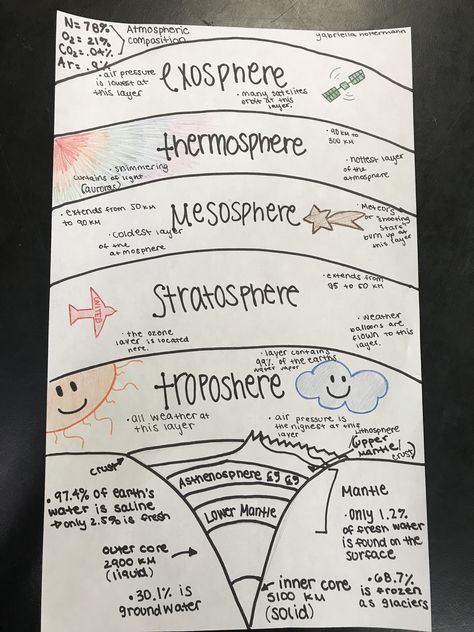 N = 78%
O₂ = 21%
CO₂ = .04%
Ar = .9%
Atmospheric
composition
gabriella holtermann
exosphere
• air pressure
is lowest at
this layer
• many satelites
orbit at this
layer.
thermosphere
• 90 KM to
300 KM
• shimmering
curtains of light
(auroras)
• hottest layer
of the
atmosphere
Mesosphere
• extends from 50 KM
to 90 KM
• coldest layer
of the
atmosphere
• Meteors
or "shooting
stars"
burn up at
this layer
stratosphere
• extends from
to 50 KM
UNITED
• the ozone
layer is located
here.
• weather
balloons are
flown to this
layer.
• layer contains
99% of the earths
water vapor
troposhere
• all weather at
this layer
• air pressure is
the highest at this
layer
Lithosphere
(upper
Mantle/
crust)
crust
Asthenosphere
Lower Mantle
• 97.4% of earth's
water is saline
→ only 2.5% is fresh
Mantle
• Only 1.2%
of fresh water
is found on the
surface
outer core
2900 KM
(liquid)
• 30.1% is
groundwater
inner core
5100 KM
(solid)
• 68.7%
is frozen
as glaciers